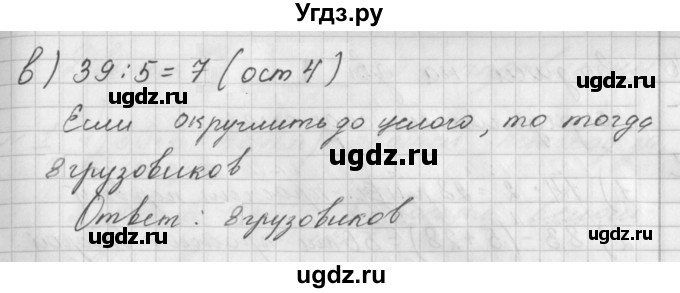 Угдз.ру
в) 39:5=7 (ост 4)
ugdz.ru ugdz.ru
Если округлить до целого, то тогда
ugdz.ru ugdz.ru
8 грузовиков
ugdz.ru
Ответ: 8 грузовиков
ugdz.ru ugdz.ru
ugdz.ru